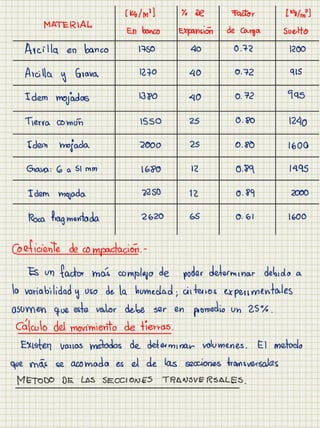 MATERIAL [Kg/m³] En banco % de Expansión Factor de Carga [Kg/m³] Suelto
Arcilla en banco 1750 40 0.72 1200
Arcilla y Grava 1270 40 0.72 915
Idem mojados 1380 40 0.72 995
Tierra común 1550 25 0.80 1240
Idem mojada 2000 25 0.80 1600
Grava: 6 a 51 mm 1680 12 0.89 1495
Idem mojada 2250 12 0.89 2000
Roca fragmentada 2620 65 0.61 1600
Coeficiente de compactación.-
Es un factor más complejo de poder determinar debido a
la variabilidad y uso de la humedad; criterios experimentales
asumen que este valor debe ser en promedio un 25%.
Cálculo del movimiento de tierras.
Existen varios métodos de determinar volumenes. El metodo
que más se acomoda es el de las secciones transversales
METODO DE LAS SECCIONES TRANSVERSALES.